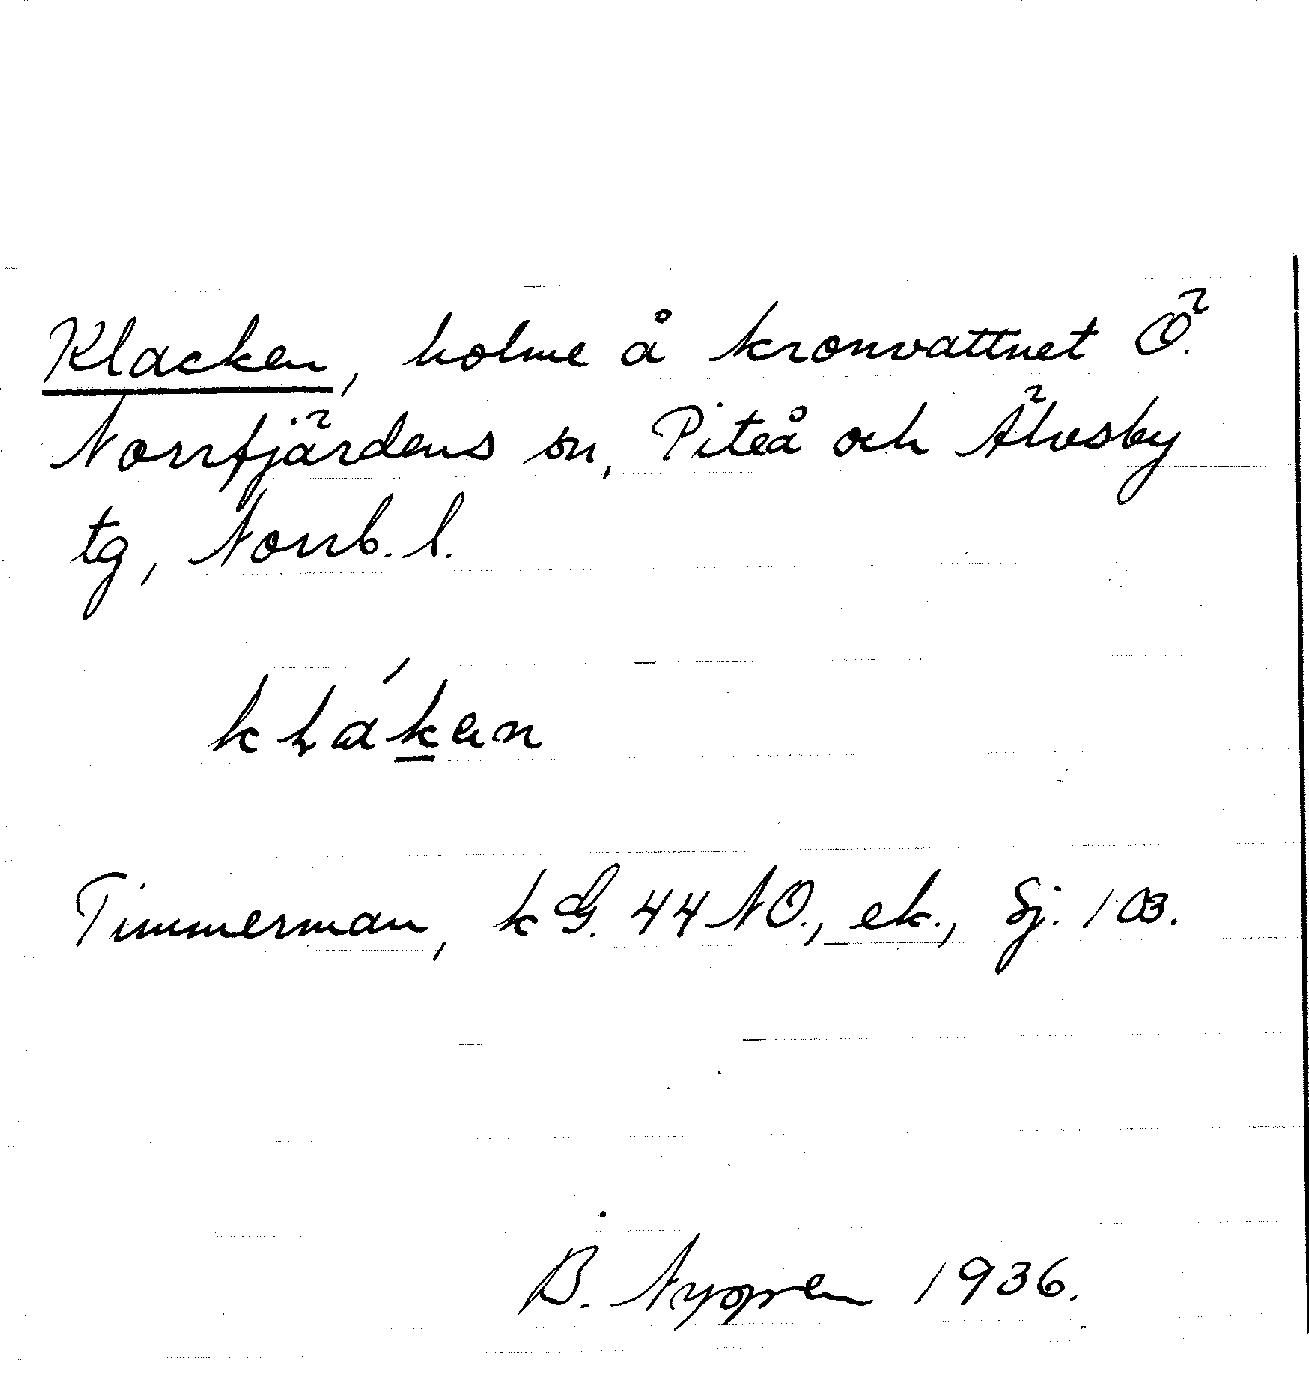 Klacken, holme å kronvattnet Ö.
Norrfjärdens sn, Piteå och Älvsby
tg, Norrb. l.
kláken
Timmerman, kG. 44 NO., ek., Sj. 103.
B. 1936.